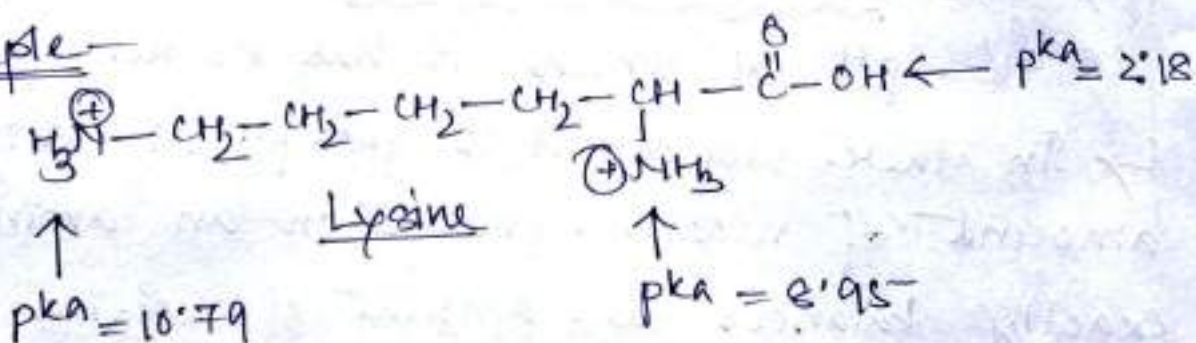 ple—
H₃N⊕—CH₂—CH₂—CH₂—CH₂—CH—C(=O)—OH ← pka = 2.18
⊕NH₃
Lysine
pka = 10.79
pka = 8.95